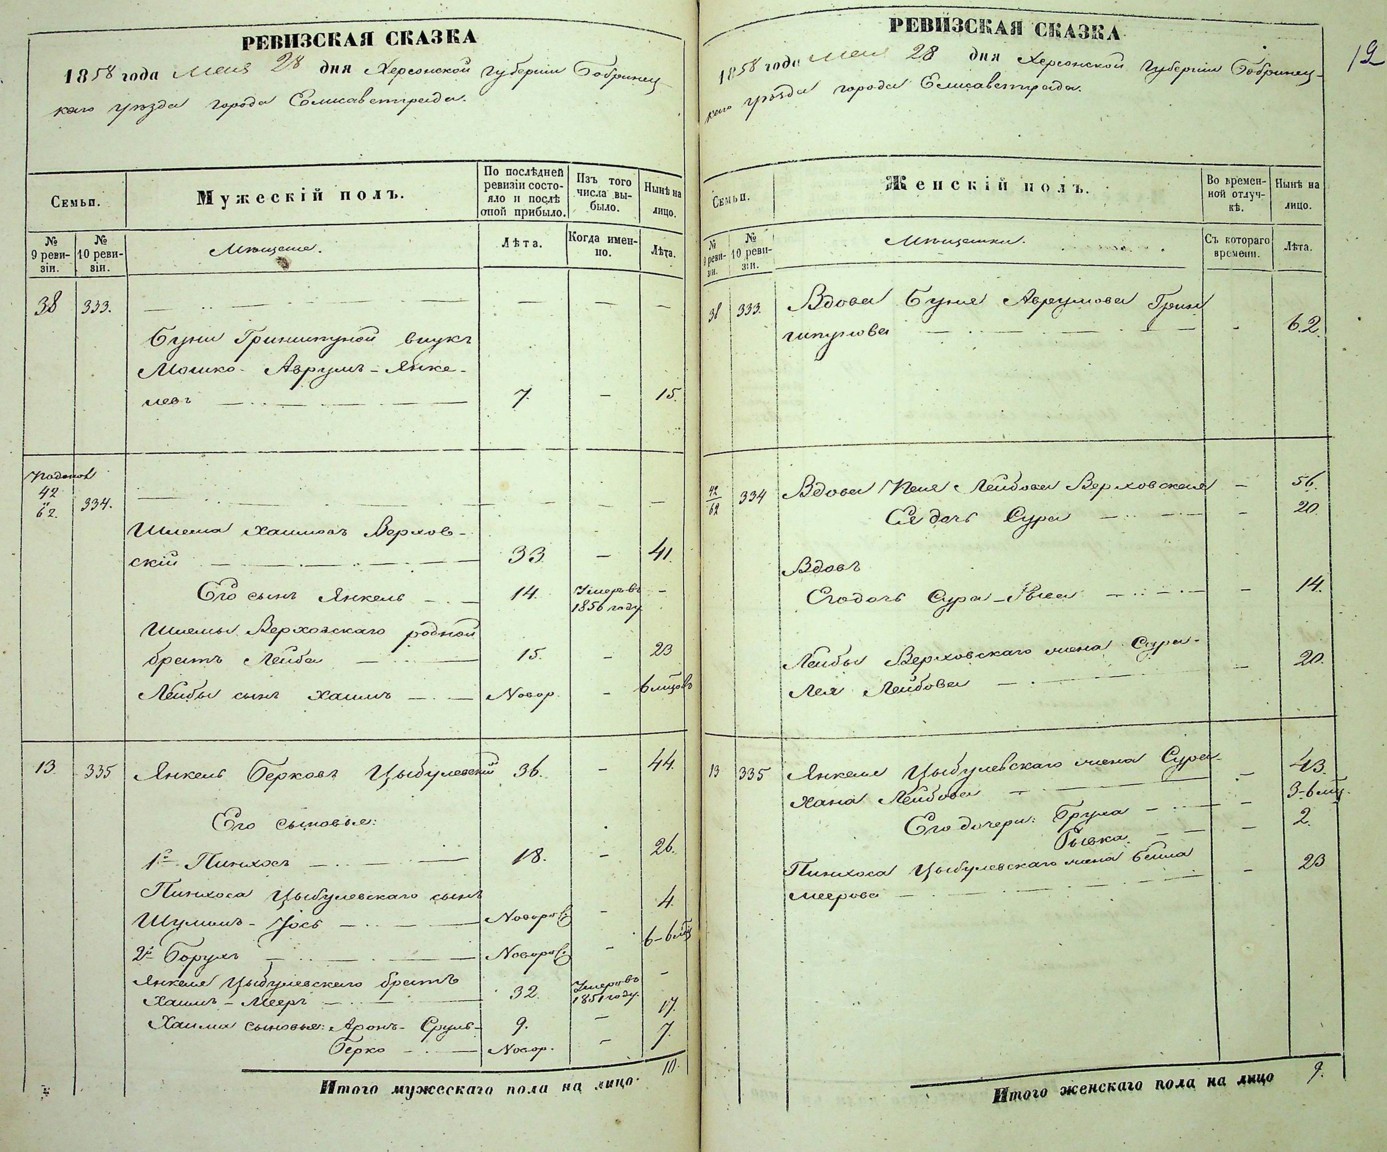 РЕВИЗСКАЯ СКАЗКА
1858 года Мая 28 дня Херсонской губернии Бобринец-
каго уезда города Елисаветграда.
Семьи.
Мужескій полъ.
По послѣдней ревизіи состояло и послѣ оной прибыло.
Изъ того числа выбыло.
Нынѣ на лицо.
№ 9 ревизіи.
№ 10 ревизіи.
Мѣщане.
Лѣта.
Когда именно.
Лѣта.
38 333.
Буни Гриншпуной внукъ
Мошко-Аврумъ-Янке-
левъ 7. 15.
42
62. 334.
Шлема Хаимовъ Верхов-
скій 33 41.
Его сынъ Янкель 14. Умеръ въ 1856 году
Шлемы Верховскаго родной
братъ Лейба 15. 23
Лейбы сынъ Хаимъ Новор. 6 мѣс
13. 335 Янкель Берковъ Цыбулевскій 36. 44.
Его сыновья:
1й Пинхосъ 18. 26.
Пинхоса Цыбулевскаго сынъ
Шулимъ-Іось Новорож 4.
2й Борухъ Новорож 6-6 мц
Янкеля Цыбулевскаго братъ
Хаимъ-Мееръ 32. Умеръ въ 1851 году.
Хаима сыновья: Аронъ-Сруль 9. 17.
Берко Новор. 7.
Итого мужескаго пола на лицо 10.
РЕВИЗСКАЯ СКАЗКА
19
1858 года Мая 28 дня Херсонской губерніи Бобринец-
каго уѣзда города Елисаветграда.
Семьи.
Женскій полъ.
Во временной отлучкѣ.
Нынѣ на лицо.
№ 9 ревизіи.
№ 10 ревизіи.
Мѣщанки.
Съ котораго времени.
Лѣта.
38 333. Вдова Буня Аврумова Грин
шпунова 62.
42
62 334 Вдова Лейбова Верховская 56.
Ея дочь Сура 20.
Вдовъ
Его дочь Сура-Рыся 14.
Лейбы Верховскаго жена Сура-
Лея Лейбова 20.
13 335 Янкеля Цыбулевскаго жена Сура-
Хана Лейбова 43.
Его дочери: Груля 3-6 мц.
Рывка 2.
Пинхоса Цыбулевскаго жена Бейла
Меерова 23
Итого женскаго пола на лицо 9.